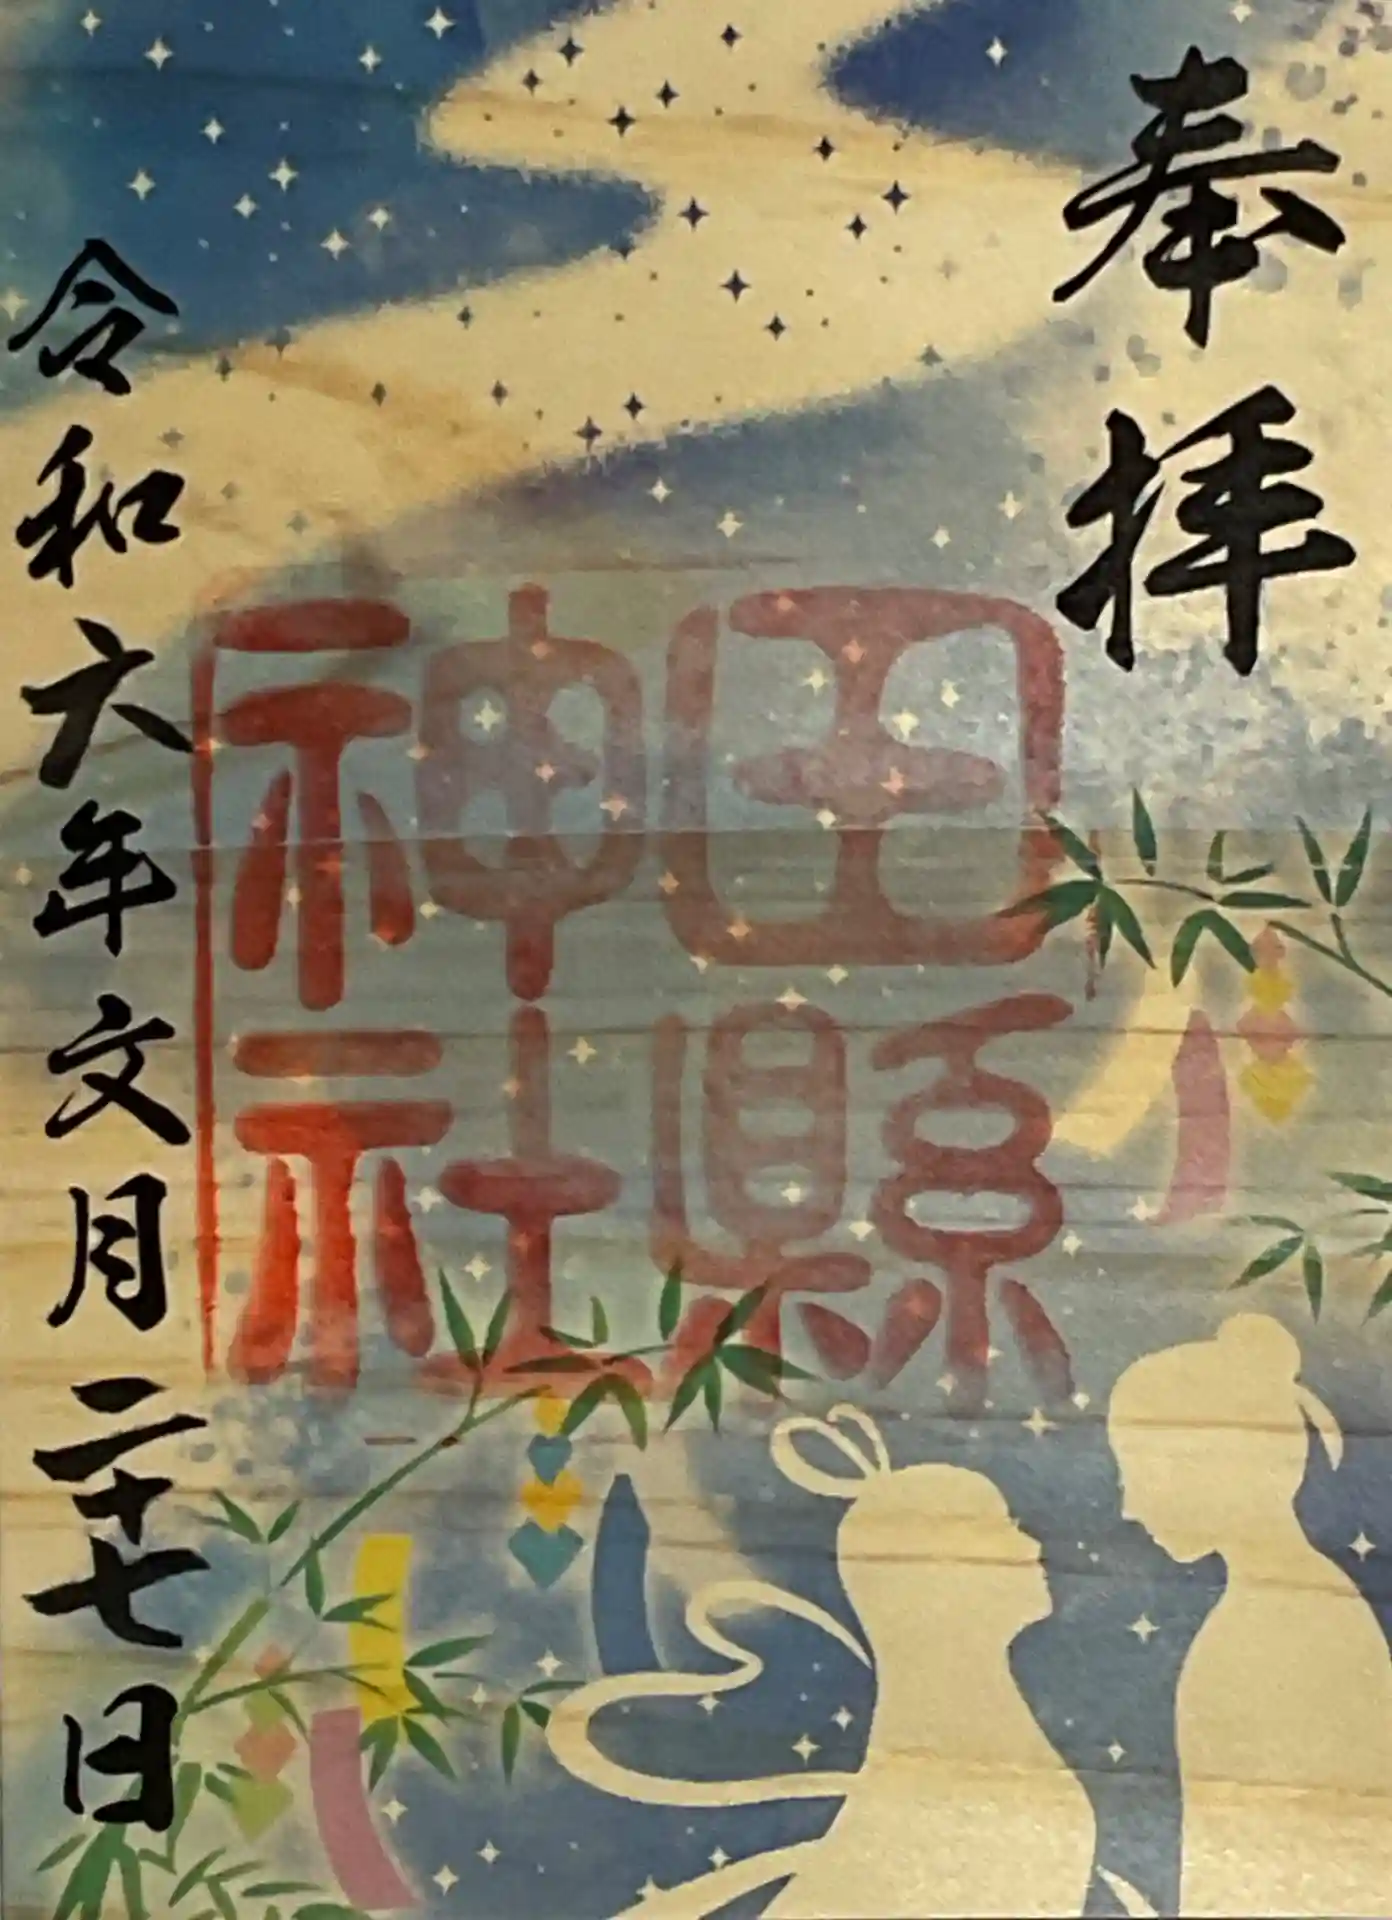 奉拝
田縣
神社
令和六年文月二十七日